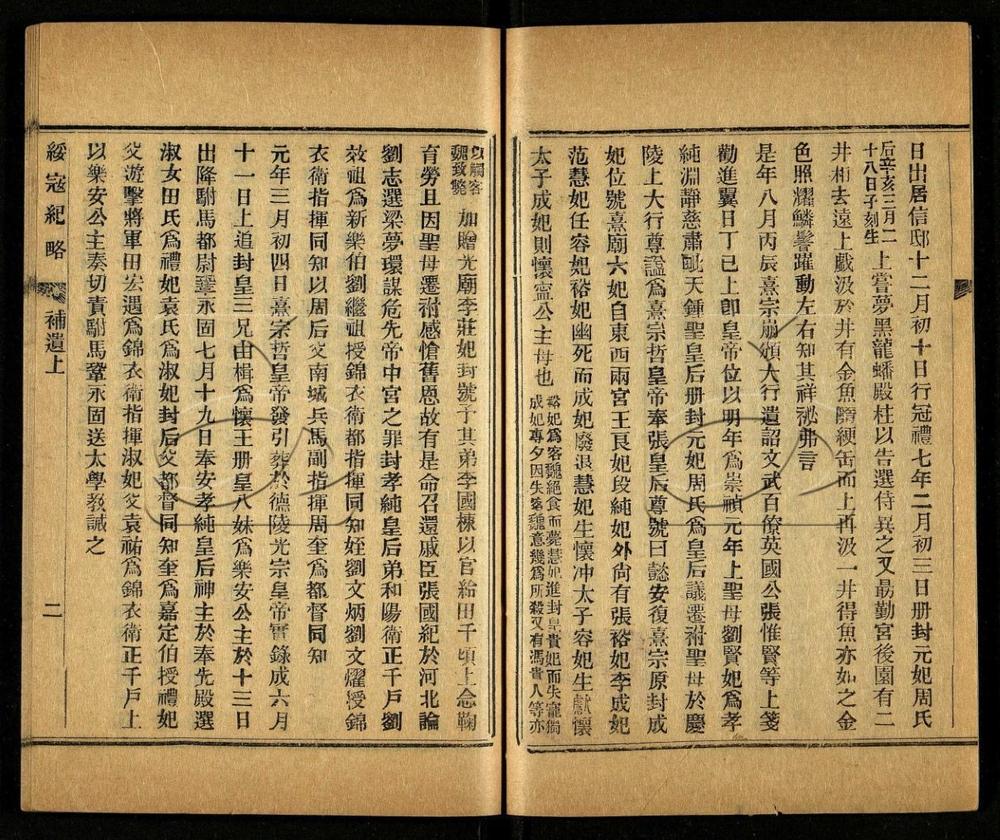 日出居信邸十二月初十日行冠禮七年二月初三日册封元妃周氏
后辛亥三月二十八日子刻生
上嘗夢黑龍蟠殿柱以告選侍異之又勗勤宮後園有二
井相去遠上戲汲於井有金魚隨綆缶而上再汲一井得魚亦如之金
色照耀鱗鬐躍動左右知其祥祕弗言
是年八月丙辰熹宗崩頒大行遺詔文武百僚英國公張惟賢等上箋
勸進翼日丁已上即皇帝位以明年爲崇禎元年上聖母劉賢妃爲孝
純淵靜慈肅毗天鍾聖皇后册封元妃周氏爲皇后議遷祔聖母於慶
陵上大行尊諡爲熹宗哲皇帝奉張皇后尊號曰懿安復熹宗原封成
妃位號熹廟六妃自東西兩宮王良妃段純妃外尙有張裕妃李成妃
范慧妃任容妃裕妃幽死而成妃廢退慧妃生懷冲太子容妃生獻懷
太子成妃則懷寧公主母也
裕妃爲客魏絕食而薨慧妃進封皇貴妃而失寵獨成妃專夕因失客魏意幾爲所殺又有馮貴人等亦
以觸客魏致斃
加贈光廟李莊妃封號予其弟李國棟以官給田千頃上念鞠
育勞且因聖母遷祔感愴舊恩故有是命召還戚臣張國紀於河北論
劉志選梁夢環謀危先帝中宮之罪封孝純皇后弟和陽衛正千戶劉
效祖爲新樂伯劉繼祖授錦衣衛都指揮同知姪劉文炳劉文燿授錦
衣衛指揮同知以周后父南城兵馬副指揮周奎爲都督同知
元年三月初四日熹宗哲皇帝發引葬於德陵光宗皇帝實錄成六月
十一日上追封皇三兄由楫爲懷王册皇八妹爲樂安公主於十三日
出降駙馬都尉鞏永固七月十九日奉安孝純皇后神主於奉先殿選
淑女田氏爲禮妃袁氏爲淑妃封后父都督同知奎爲嘉定伯授禮妃
父遊擊將軍田宏遇爲錦衣衛指揮淑妃父袁祐爲錦衣衛正千戶上
以樂安公主奏切責駙馬鞏永固送太學敎誡之
綏寇紀略 補遺上 二